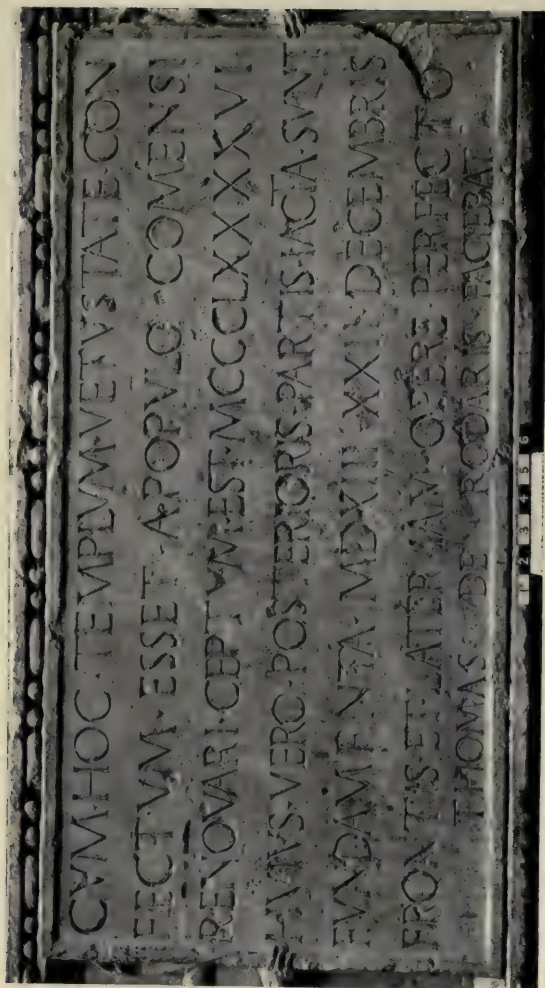 CVM·HOC·TEMPLVM·VETVSTATE·CON
FECTVM·ESSET·APOPVLO·COMENSI
RENOVARI·CEPTVM·EST·MCCCLXXXXVI
HVIVS·VERO·POSTERIORIS·PARTIS·IACTA·SVNT
FVNDAMENTA·MDXIII·XXII·DECEMBRIS
FRONTIS·ET·LATERVM·IAM·OPERE·PERFECTO
THOMAS·DE·RODARIS·FACIEBAT
1 2 3 4 5 6